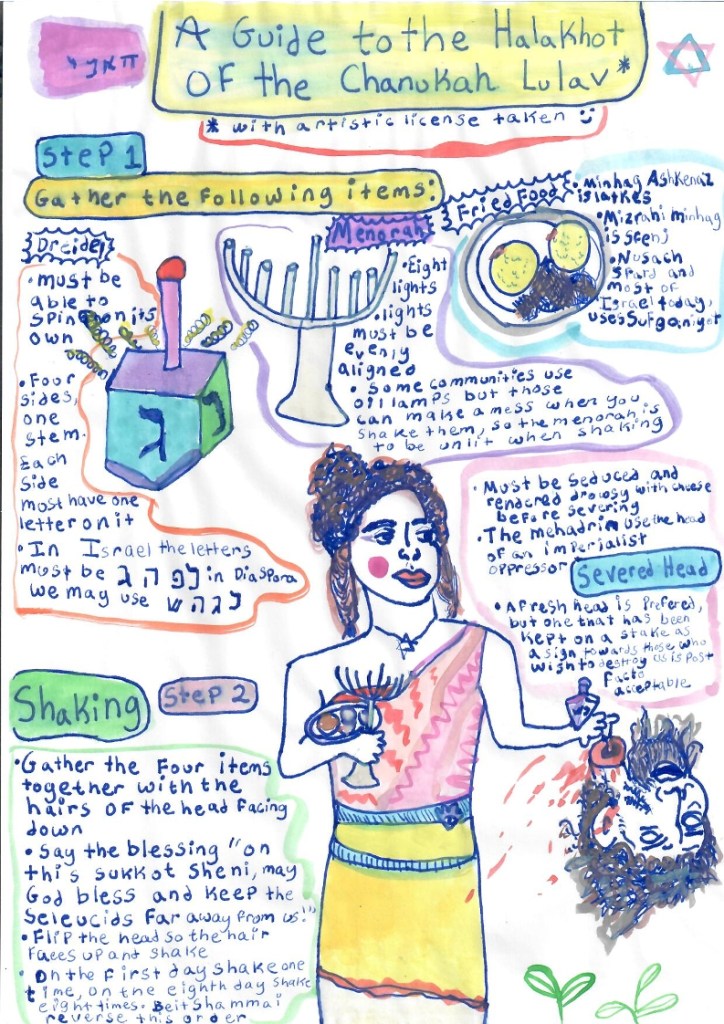 A Guide to the Halakhot
OF the Chanukah Lulav*
* with artistic license taken
Step 1
Gather the Following items:
Dreidel
• must be
able to
spin on its
own
• Four
sides,
one
stem.
Each
side
must have one
letter on it
• In Israel the letters
must be נ פ ה ג in Diaspora
we may use נ ג ה ש
ג
נ
Menorah
• Eight
lights
• lights
must be
evenly
aligned
• Some communities use
oil lamps but those
can make a mess when you
shake them, so the menorah is
to be unlit when shaking
Fried Food
• Minhag Ashkenaz
is latkes
• Mizrahi minhag
is sfenj
• Nusach
Sfard and
most of
Israel today,
uses Sufganiyot
• Must be seduced and
rendered drowsy with cheese
before severing
• The mehadrin use the head
of an imperialist
oppressor
Severed Head
• A fresh head is prefered,
but one that has been
kept on a stake as
a sign towards those who
wish to destroy us is post
facto
acceptable
Shaking
Step 2
• Gather the Four items
together with the
hairs of the head facing
down
• Say the blessing "on
this sukkot sheni, may
God bless and keep the
Seleucids far away from us!"
• Flip the head so the hair
faces up and shake
• On the first day shake one
time, on the eighth day shake
eight times. Beit Shammai
reverse this order